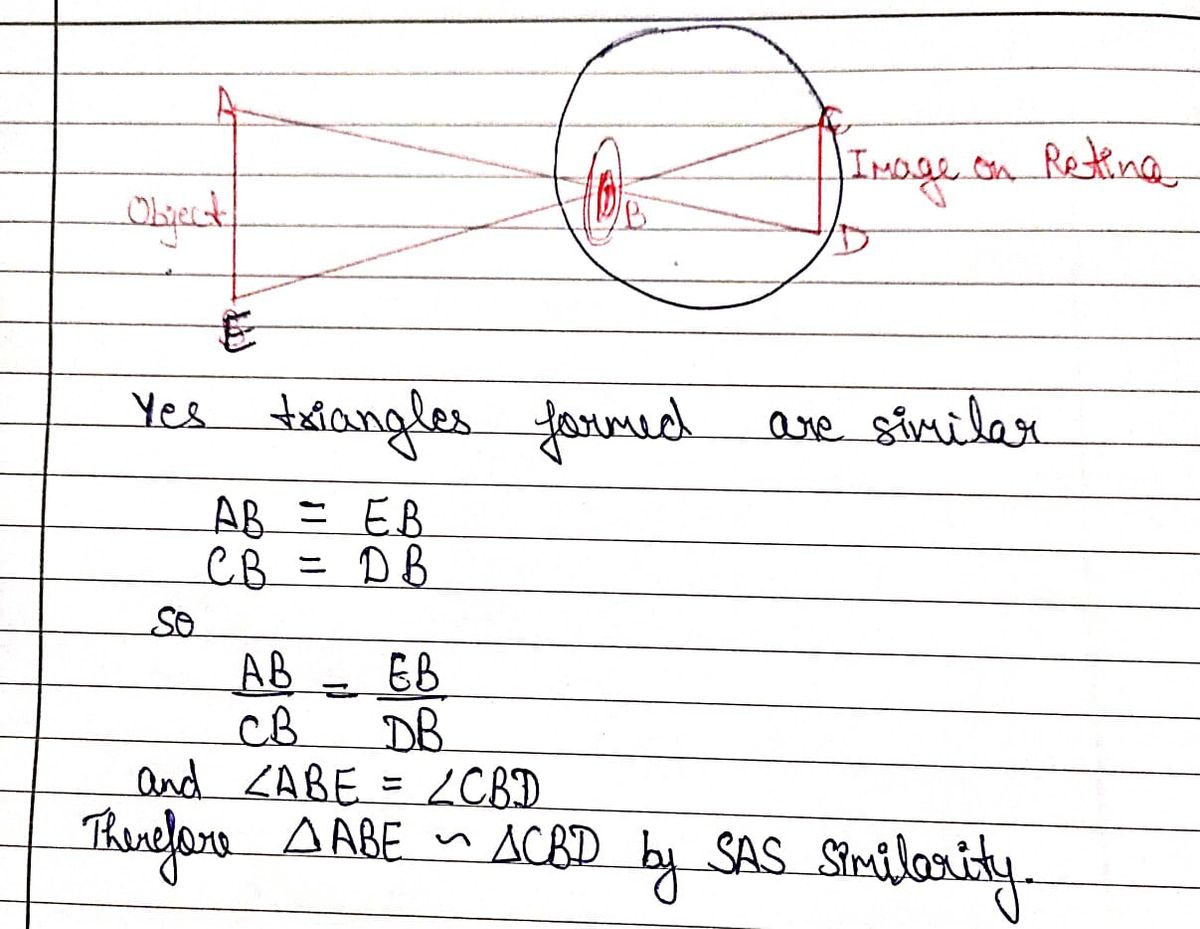 A
C
Image on Retina
Object
B
D
E
Yes triangles formed are similar
AB = EB
CB = DB
so
AB = EB
CB DB
and ∠ABE = ∠CBD
Therefore △ABE ~ △CBD by SAS Similarity.